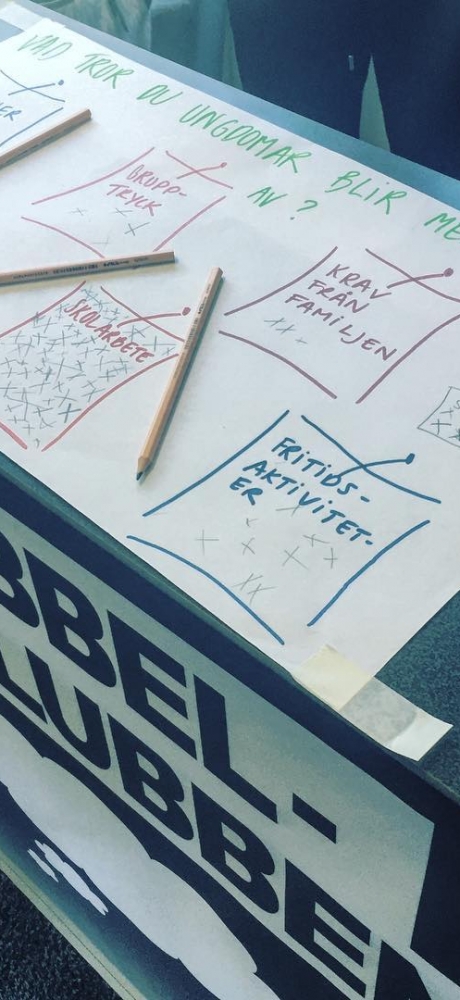 VAD TROR DU UNGDOMAR BLIR ME
AV ?
ER
GRUPP-
TRYCK
KRAV
FRÅN
FAMILJEN
SKOLARBETE
FRITIDS-
AKTIVITET-
ER
BBEL-
LUBBEN